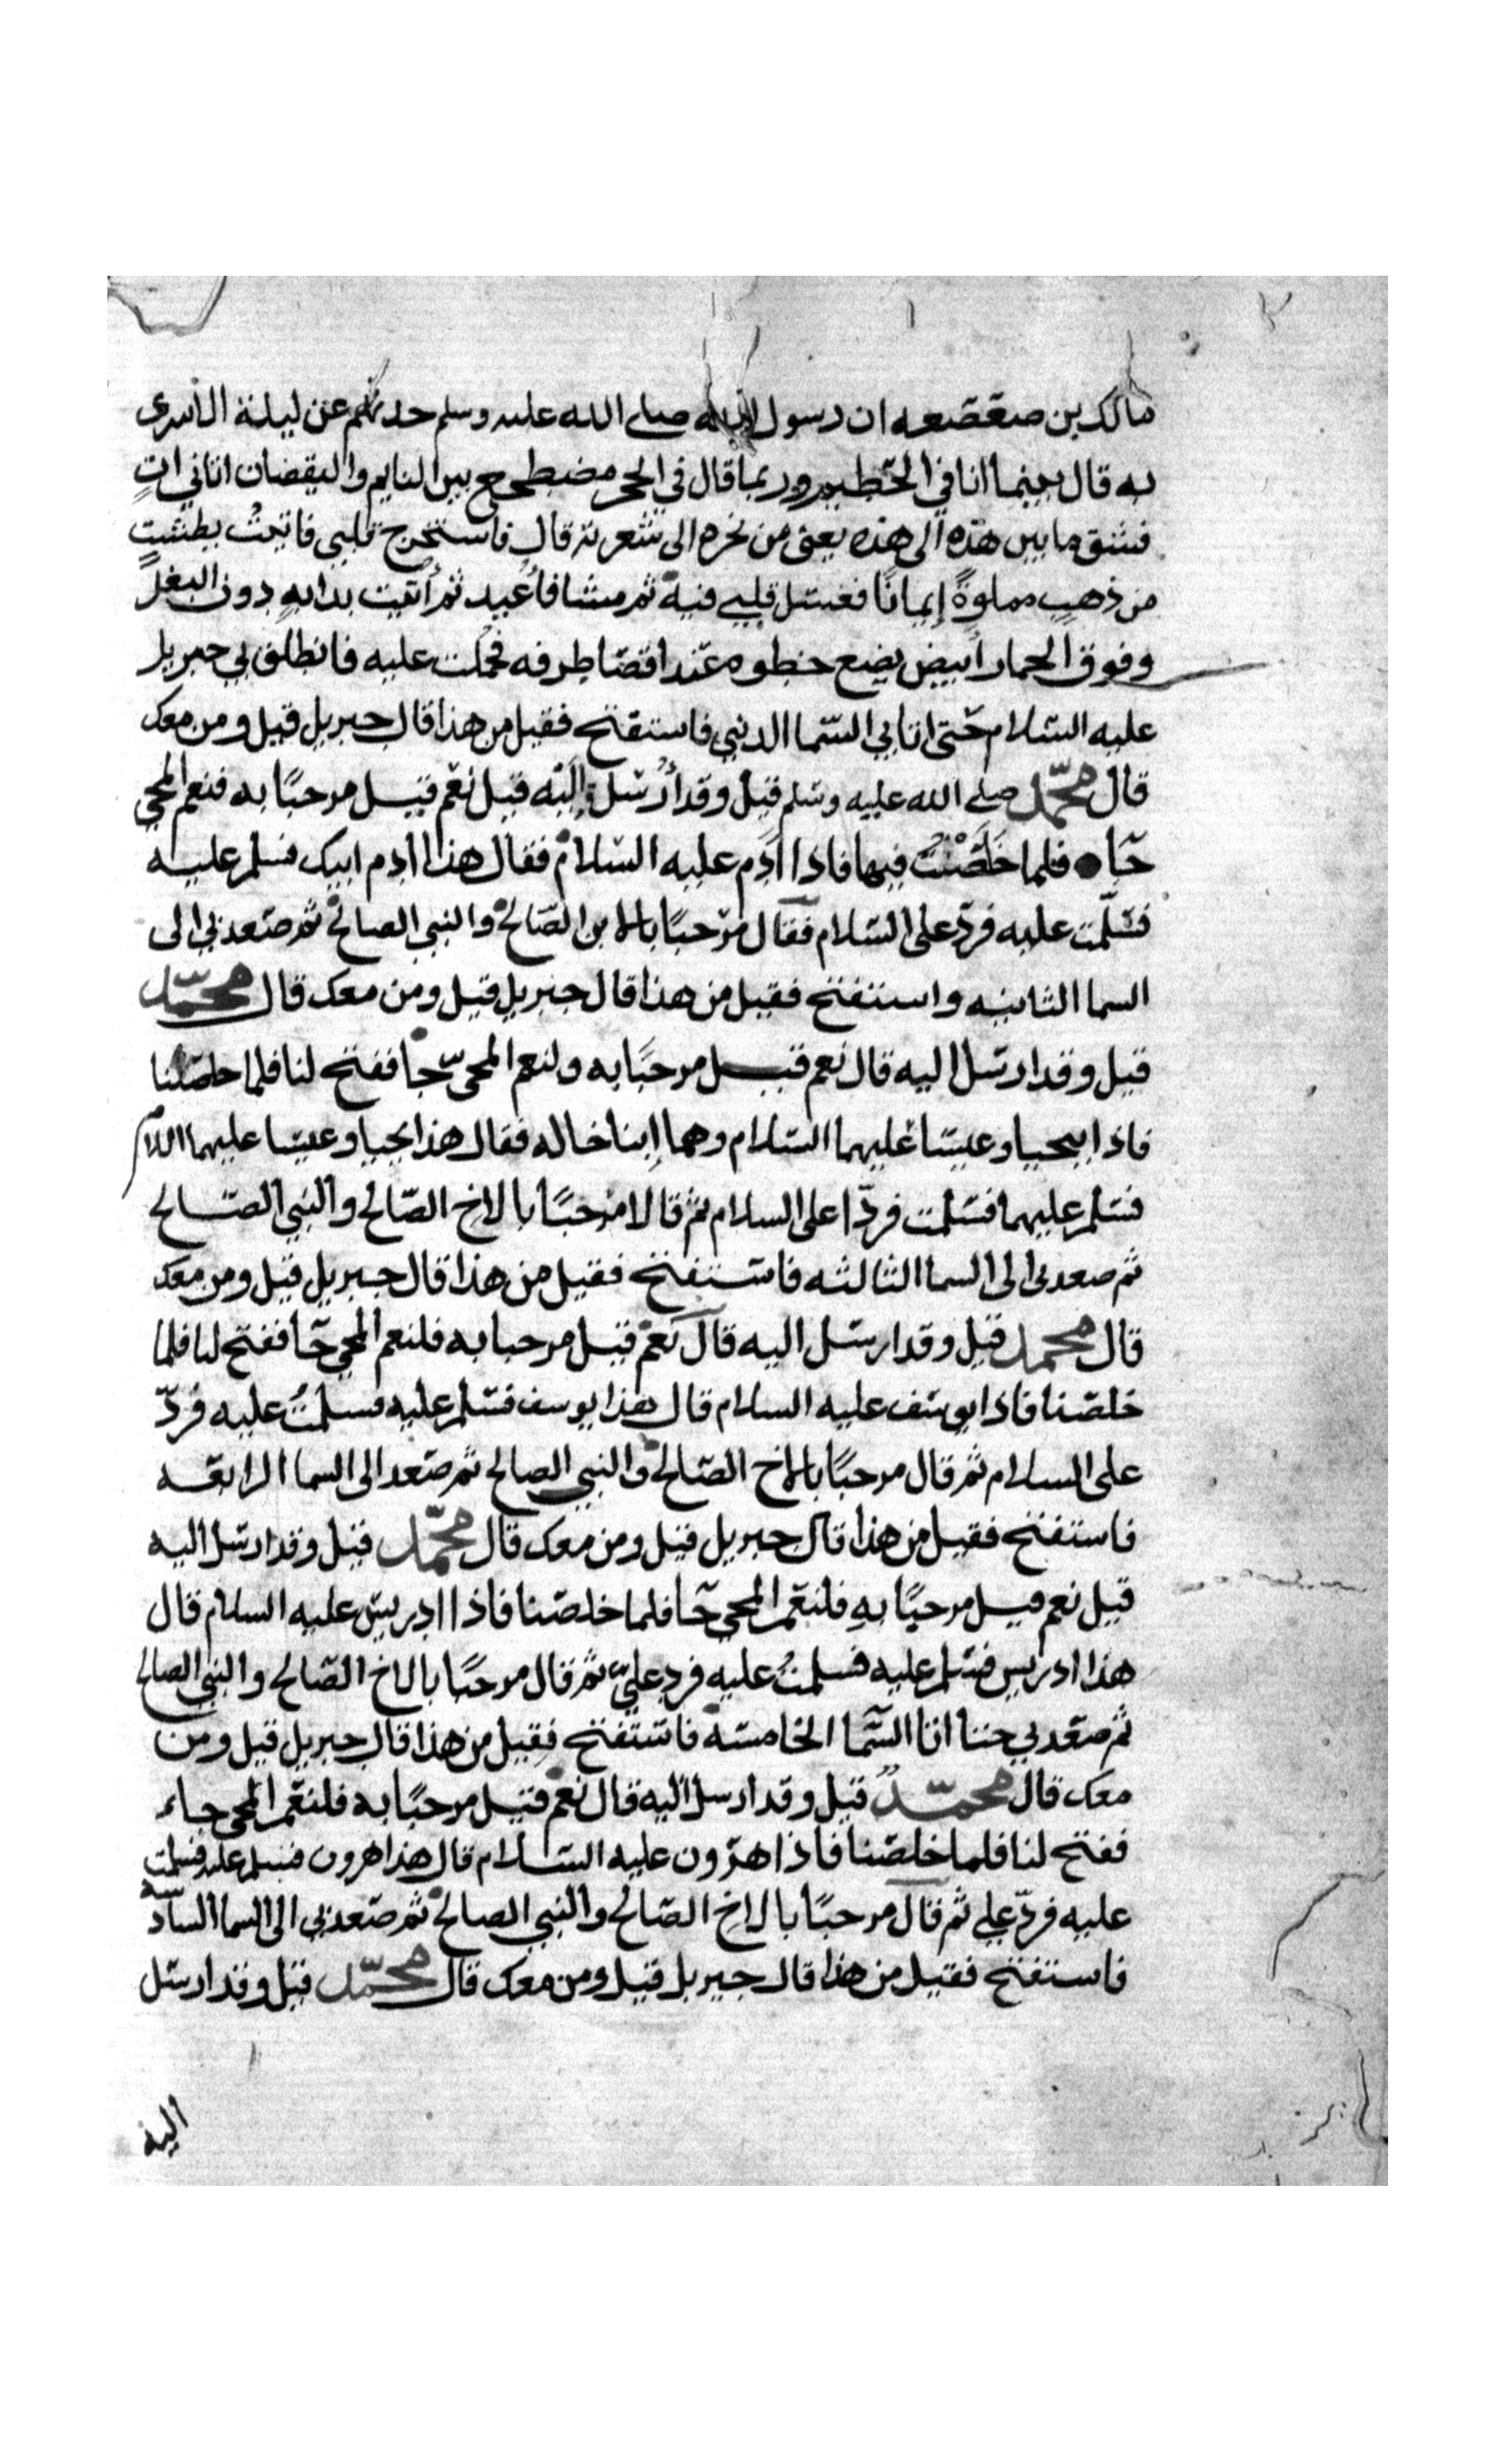 مالك بن صعصعه ان رسول الله صلى الله عليه وسلم حدثكم عن ليلة الاسرى
به قال بينما انا في الحطيم وربما قال في الحجر مضطجع بين النايم واليقضان اتاني اتٍ
فشق ما بين هذه الى هذه يعنى من نحره الى شعرته قال فاستخرج قلبي فاتيت بطشتٍ
من ذهبٍ مملوةً إيمانًا فغسل قلبي فيه ثم مشا فاعيد ثم أتيت بدابهٍ دون البغل
وفوق الحمار أبيض يضع خطوه عند اقصا طرفه فحملت عليه فانطلق بي جبريل
عليه السلام حتى اتا بي السما الدنيي فاستفتح فقيل من هذا قال جبريل قيل ومن معك
قال محمد صلى الله عليه وسلم قيل وقد أُرسل إليه قيل نعم قيل مرحبًا به فنعم المجي
جآ فلما خَلَصْتُ فيها فاذا ادم عليه السلام فقال هذا ادم ابيك فسلم عليه
فسلمت عليه فردّ على السلام فقال مرحبًا بالابن الصالح والنبي الصالح ثم صعد بي الى
السما الثانيه واستفتح فقيل من هذا قال جبريل قيل ومن معك قال محمّد
قيل وقد ارسل اليه قال نعم قيل مرحبًا به ولنعم المجيّ جا ففتح لنا فلما خلصنا
فاذا بيحيا وعيسا عليهما السلام وهما إبنا خاله فقال هذا يحيا وعيسا عليهما السلام
فسلم عليهما فسلمت فردّا على السلام ثم قالا مرحبًا بالاخ الصّالح والنبي الصالح
ثم صعد بى الى السما الثالثه فاستفتح فقيل من هذا قال جبريل قيل ومن معك
قال محمد قيل وقد ارسل اليه قال نعم قيل مرحبا به فلنعم المجي جآ ففتح لنا فلما
خلصنا فاذا يوسف عليه السلام قال هذا يوسف فسلم عليه فسلمتُ عليه فردّ
على السلام ثم قال مرحبًا بالاخ الصالح والنبي الصالح ثم صعد الى السما الرابعه
فاستفتح فقيل من هذا قال جبريل قيل ومن معك قال محمّد قيل وقد ارسل اليه
قيل نعم قيل مرحبًا بهِ فلنعم المجي جآ فلما خلصنا فاذا ادريس عليه السلام قال
هذا ادريس فسلم عليه فسلمتُ عليه فرد عليّ ثم قال مرحبًا بالاخ الصّالح والنبي الصالح
ثم صعد بي حتا اتا السّما الخامسه فاستفتح فقيل من هذا قال جبريل قيل ومن
معك قال محمّدٌ قيل وقد ارسل اليه قال نعم قيل مرحبًا به فلنعم المجي جاء
ففتح لنا فلما خلصنا فاذا هرون عليه السلام قال هذا هرون فسلم عليه فسلمت
عليه فردّ علي ثم قال مرحبًا بالاخ الصّالح والنبي الصالح ثم صعد بي الى السما السادسه
فاستفتح فقيل من هذا قال جبريل قيل ومن معك قال محمّد قيل وقد ارسل
اليه